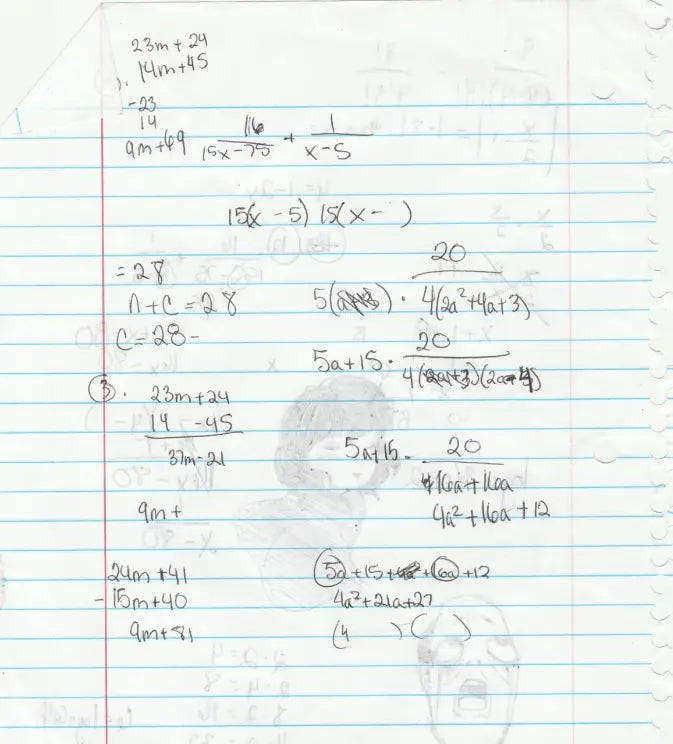 23m + 24
). 14m+45
-23
14
9m+69
116/(15x-75) + 1/(x-5)
15(x - 5) 15(x -   )
= 28
n + c = 28
c = 28 -
5(     ) · 20/(4(2a²+4a+3))
5a+15 · 20/(4(2a+3)(2a+4))
③. 23m+24
14 -45
37m-21
9m +
5a+15 · 20
16a+16a
4a²+16a+12
24m +41
- 15m+40
9m+81
5a+15+4a²+16a+12
4a²+21a+27
(4   ) (   )